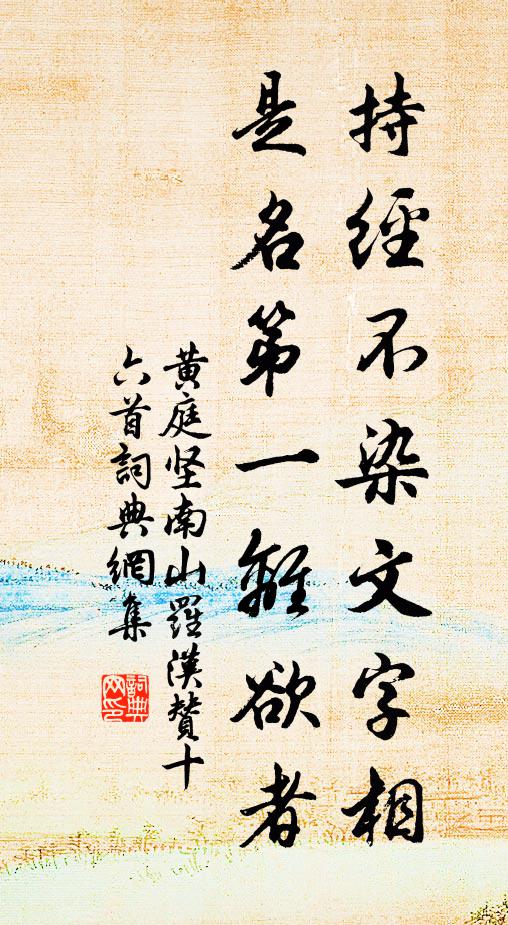 持經不染文字相
是名第一離欲者
黄庭坚南山羅漢贊十
六首詞典網集
詞典
网印